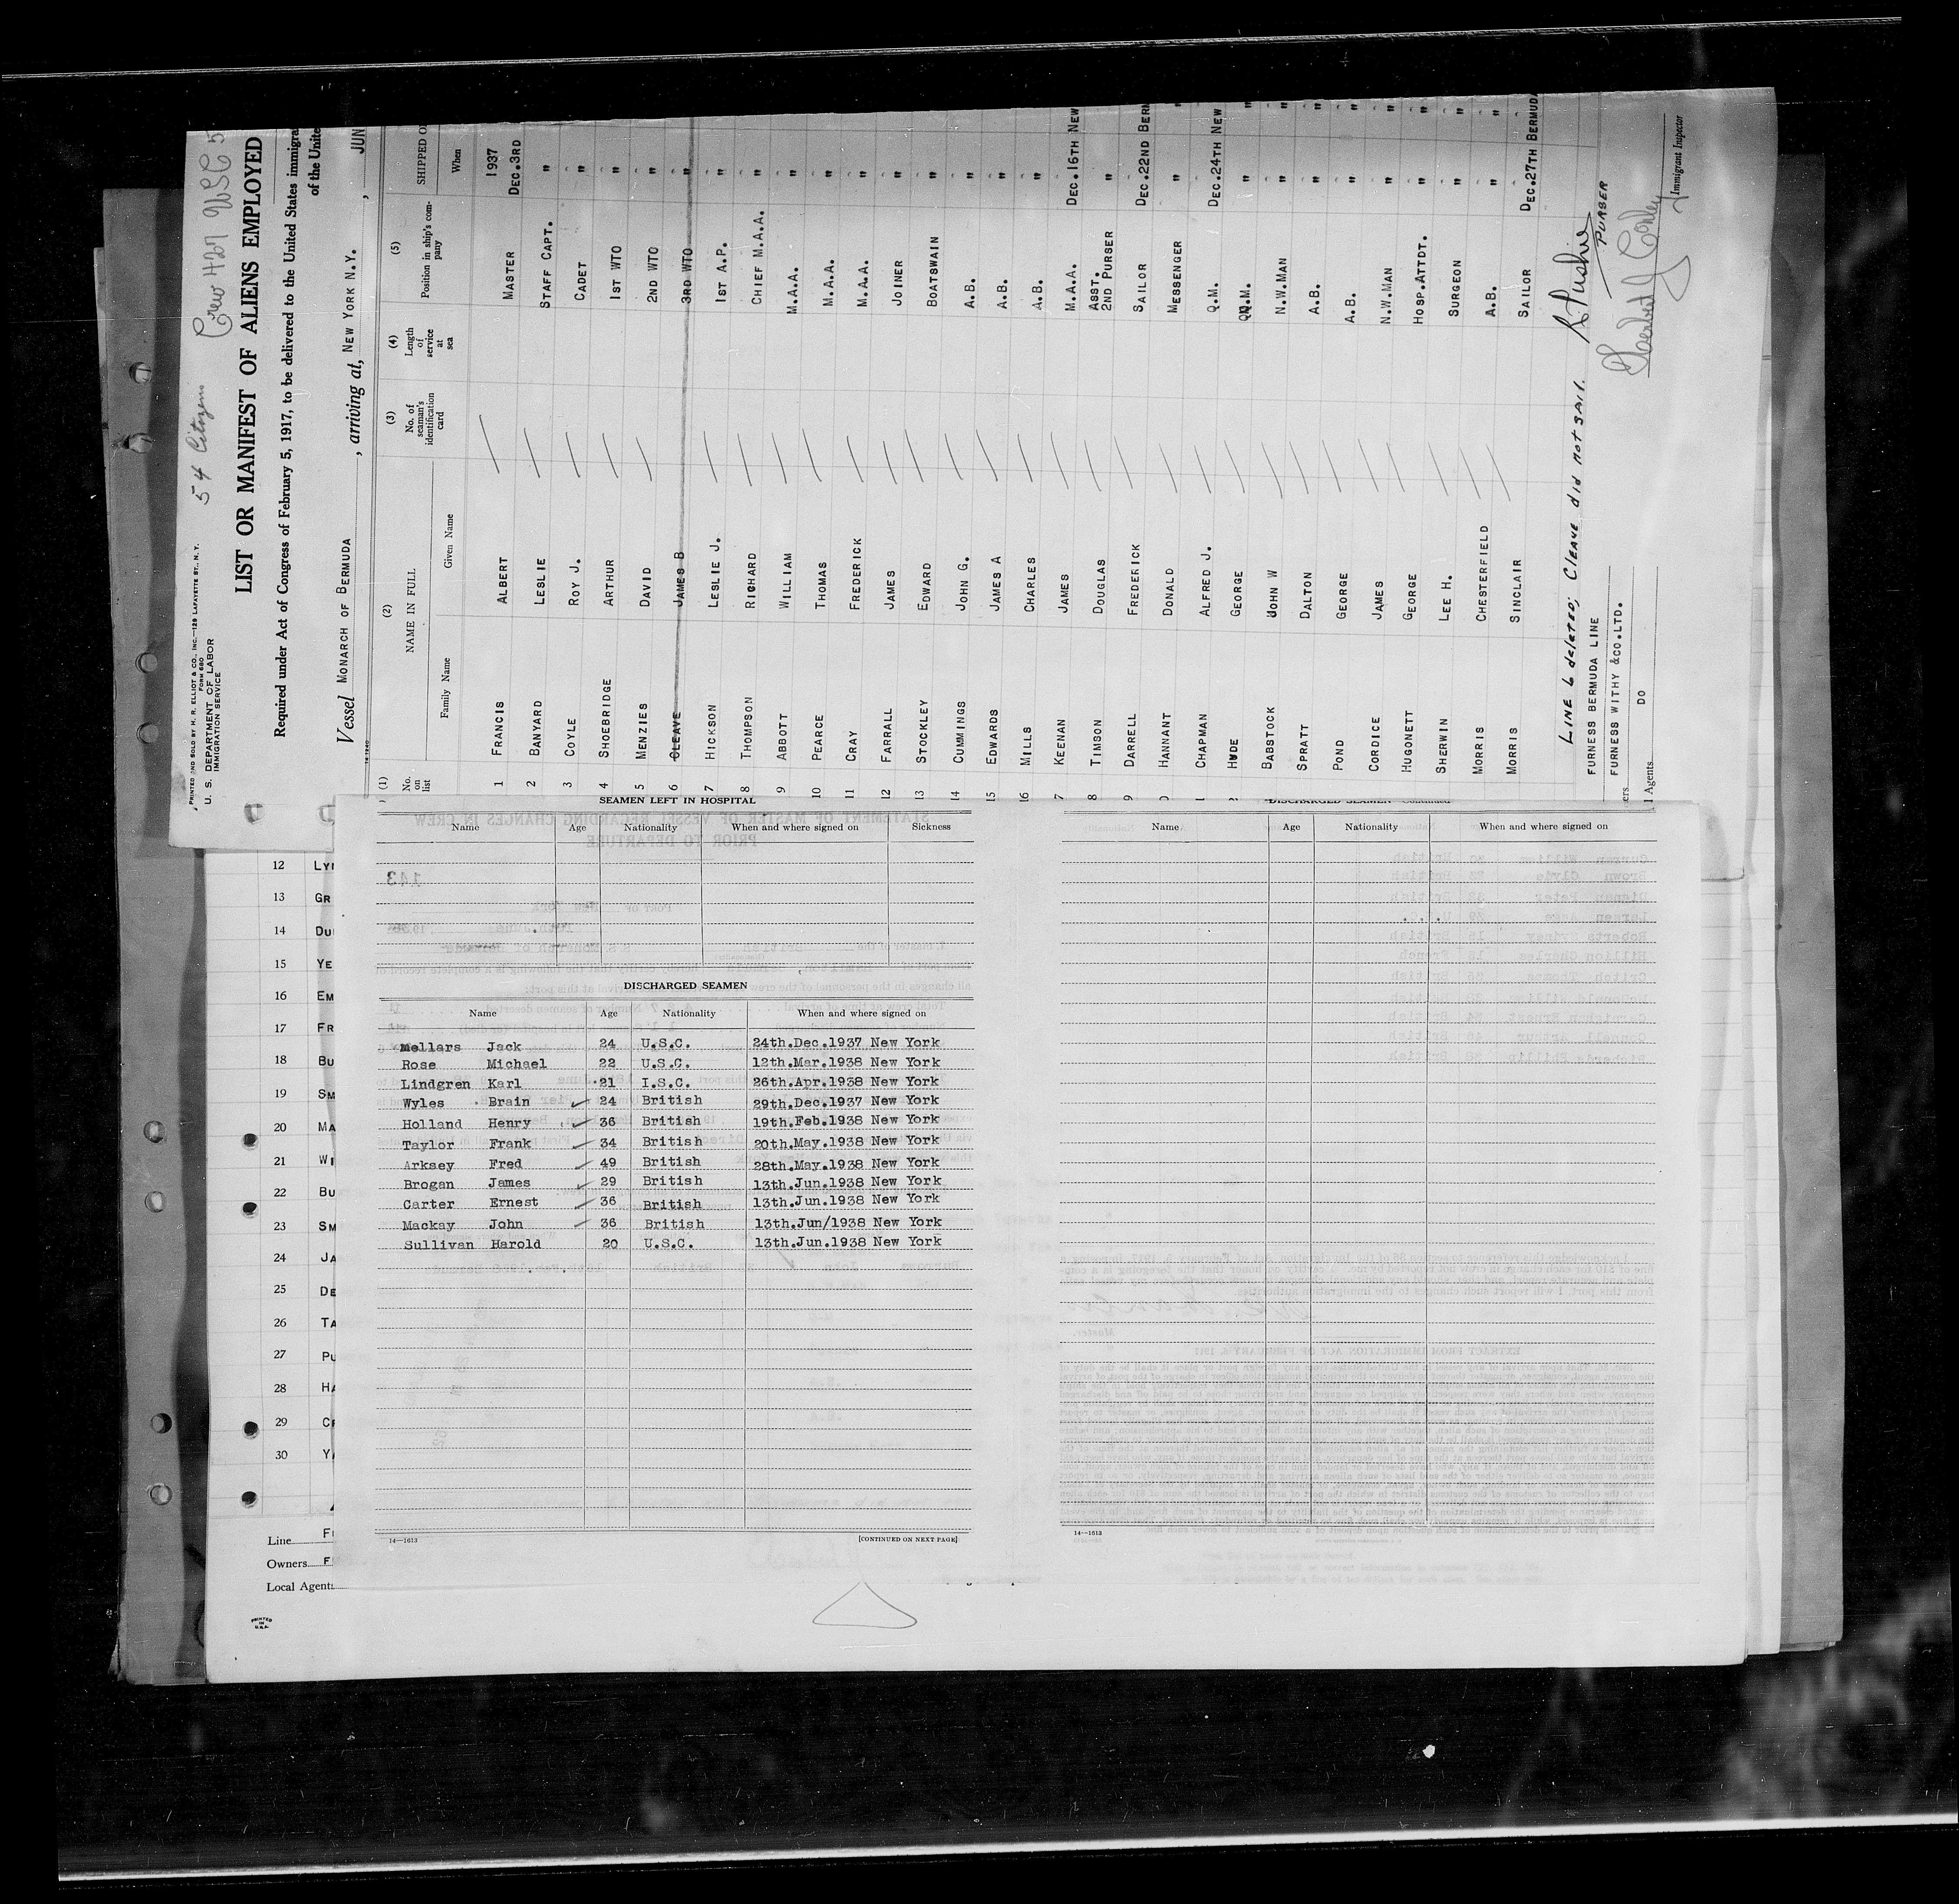 54 Citizens Crew 427 USC 5
PRINTED AND SOLD BY H. R. ELLIOT & CO., INC.—129 LAFAYETTE ST., N. Y.
FORM 680
U. S. DEPARTMENT OF LABOR
IMMIGRATION SERVICE
LIST OR MANIFEST OF ALIENS EMPLOYED
Required under Act of Congress of February 5, 1917, to be delivered to the United States immigra
of the Unite
Vessel MONARCH OF BERMUDA , arriving at, NEW YORK N.Y. , JUN
(1) (2) (3) (4) (5) SHIPPED O
No. on list NAME IN FULL No. of seaman's identification card Length of service at sea Position in ship's company When
Family Name Given Name
1937
1 FRANCIS ALBERT MASTER DEC.3RD
2 BANYARD LESLIE STAFF CAPT. "
3 COYLE ROY J. CADET "
4 SHOEBRIDGE ARTHUR 1ST WTO "
5 MENZIES DAVID 2ND WTO "
6 CLEAVE JAMES B 3RD WTO "
7 HICKSON LESLIE J. 1ST A.P. "
8 THOMPSON RICHARD CHIEF M.A.A. "
9 ABBOTT WILLIAM M.A.A. "
10 PEARCE THOMAS M.A.A. "
11 CRAY FREDERICK M.A.A. "
12 FARRALL JAMES JOINER "
13 STOCKLEY EDWARD BOATSWAIN "
14 CUMMINGS JOHN G. A.B. "
15 EDWARDS JAMES A A.B. "
16 MILLS CHARLES A.B. "
7 KEENAN JAMES M.A.A. DEC.16TH NEW
8 TIMSON DOUGLAS ASST. 2ND PURSER "
9 DARRELL FREDERICK SAILOR DEC.22ND BERM
0 HANNANT DONALD MESSENGER " "
1 CHAPMAN ALFRED J. Q.M. DEC.24TH NEW
2 HUDE GEORGE Q.M. " "
BABSTOCK JOHN W N.W.MAN " "
SPRATT DALTON A.B. " "
POND GEORGE A.B. " "
CORDICE JAMES N.W.MAN " "
HUGONETT GEORGE HOSP.ATTDT. " "
SHERWIN LEE H. SURGEON " "
MORRIS CHESTERFIELD A.B. " "
MORRIS SINCLAIR SAILOR DEC.27TH BERMUDA
LINE 6 deleted; CLEAVE did not sail.
PURSER
FURNESS BERMUDA LINE
FURNESS WITHY &CO.LTD.
ers
l Agents DO
Immigrant Inspector
SEAMEN LEFT IN HOSPITAL
Name Age Nationality When and where signed on Sickness
DISCHARGED SEAMEN
Name Age Nationality When and where signed on
Mellars Jack 24 U.S.C. 24th.Dec.1937 New York
Rose Michael 22 U.S.C. 12th.Mar.1938 New York
Lindgren Karl 21 I.S.C. 26th.Apr.1938 New York
Wyles Brain 24 British 29th.Dec.1937 New York
Holland Henry 36 British 19th.Feb.1938 New York
Taylor Frank 34 British 20th.May.1938 New York
Arksey Fred 49 British 28th.May.1938 New York
Brogan James 29 British 13th.Jun.1938 New York
Carter Ernest 36 British 13th.Jun.1938 New York
Mackay John 36 British 13th.Jun/1938 New York
Sullivan Harold 20 U.S.C. 13th.Jun.1938 New York
14—1613 [CONTINUED ON NEXT PAGE]
DISCHARGED SEAMEN—Continued
Name Age Nationality When and where signed on
14—1613
12 LY
13 GR
14 DU
15 YE
16 EM
17 FR
18 BU
19 SM
20 MA
21 WI
22 BU
23 SM
24 JA
25 DE
26 TA
27 PU
28 HA
29 CR
30 YA
Line F
Owners F
Local Agent
PRINTED
IN
U.S.A.